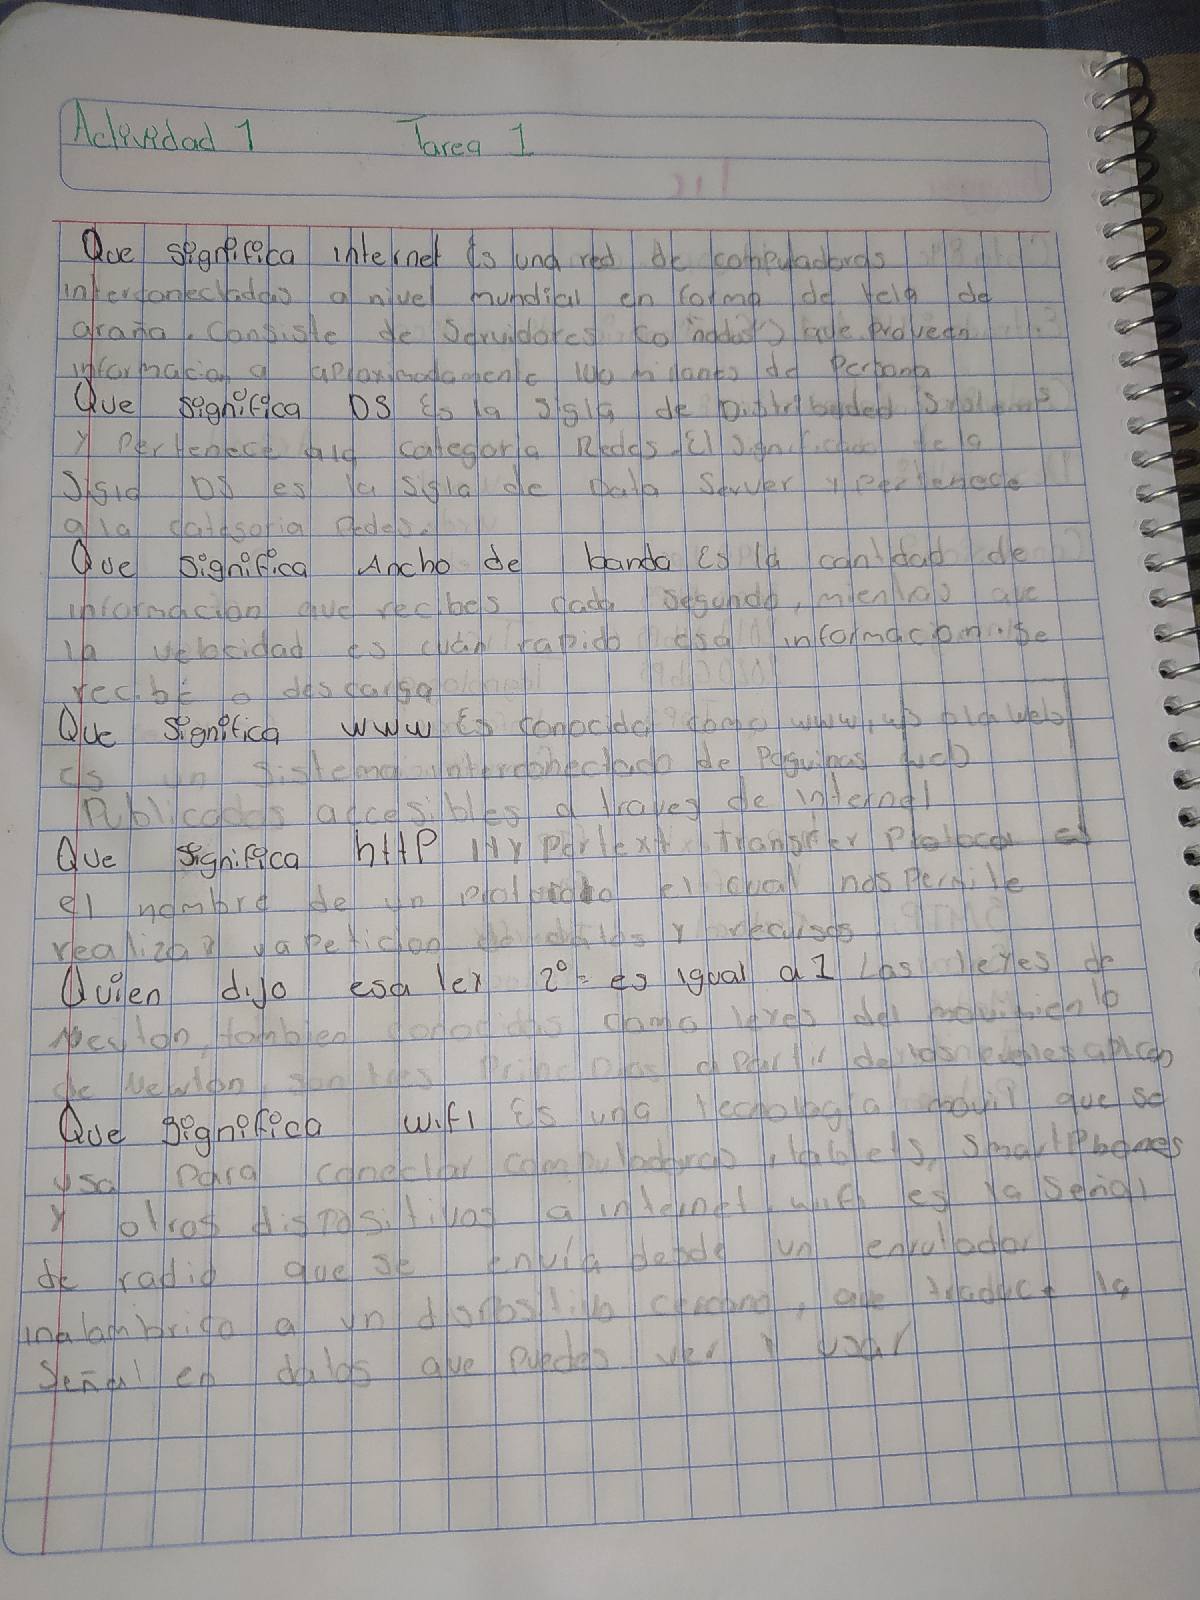 Actividad 1 Tarea 1
Que significa internet Es una red de computadoras
interconectadas a nivel mundial en forma de tela de
araña. Consiste de servidores (o "nodos") que proveen
informacion a aproximadamente 100 millones de persona
Que significa DS Es la sigla de Distributed Systems
y pertenece ala categoria Redes. El significado de la
Sigla DS es la sigla de Data Server y pertenece
a la categoria redes.
Que significa Ancho de banda Es la cantidad de
informacion que recibes cada segundo, mientras que
la velocidad es cuán rapido esa informacion se
recibe o descarga
Que significa www Es conocida como www, o la web
es un sistema interconectado de Paguinas web
Publicadas accesibles a traves de internet
Que significa httP Hypertext transfer Protocol
el nombre de un protocolo el cual nos permite
realizar una peticion de datos y
Quien dijo esa ley 2° = es igual a 1 Las leyes de
Newton, tambien conocidas como leyes del movimiento
de Newton, son tres principios a partir de los cuales
Que significa wifi Es una tecnologia movil que se
usa para conectar computadoras, tablets, smartphones
y otros dispositivos a internet wifi es la señal
de radio que se envía desde un enrutador
inalambrico a un dispositivo cercano, que traduce la
Señal en datos que puedes ver y usar